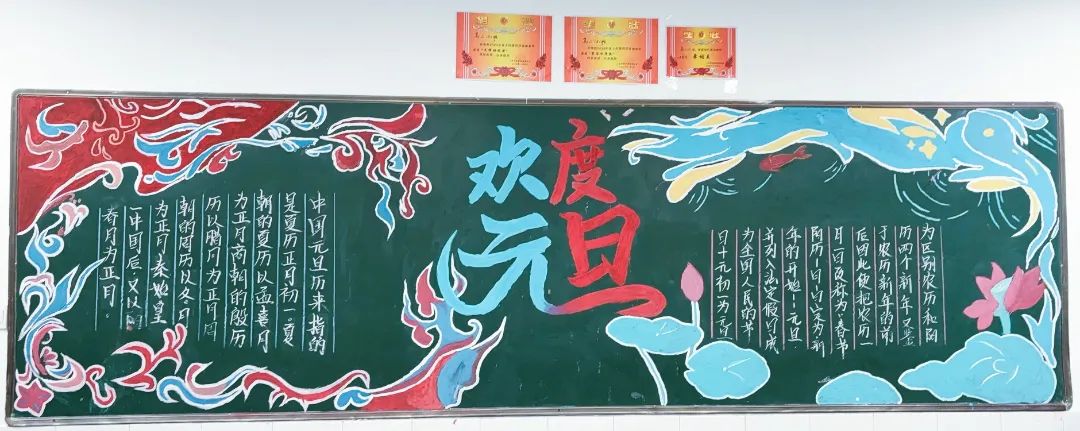 欢度
元旦
中国元旦历来指的
是夏历正月初一。夏
朝的夏历以孟喜月
为正月商朝的殷历
历以腊月为正月周
朝的周历以冬月
为正月。秦始皇
一中国后,又以阳
春月为正月。
为区别农历和阳
历两个新年又鉴
于农历新年的前
后因此便把农历一
月一日改称为"春节
阳历一日一日定为新
年的开始——元旦
并列入法定假日成
为全国人民的节
日十元初一为元日